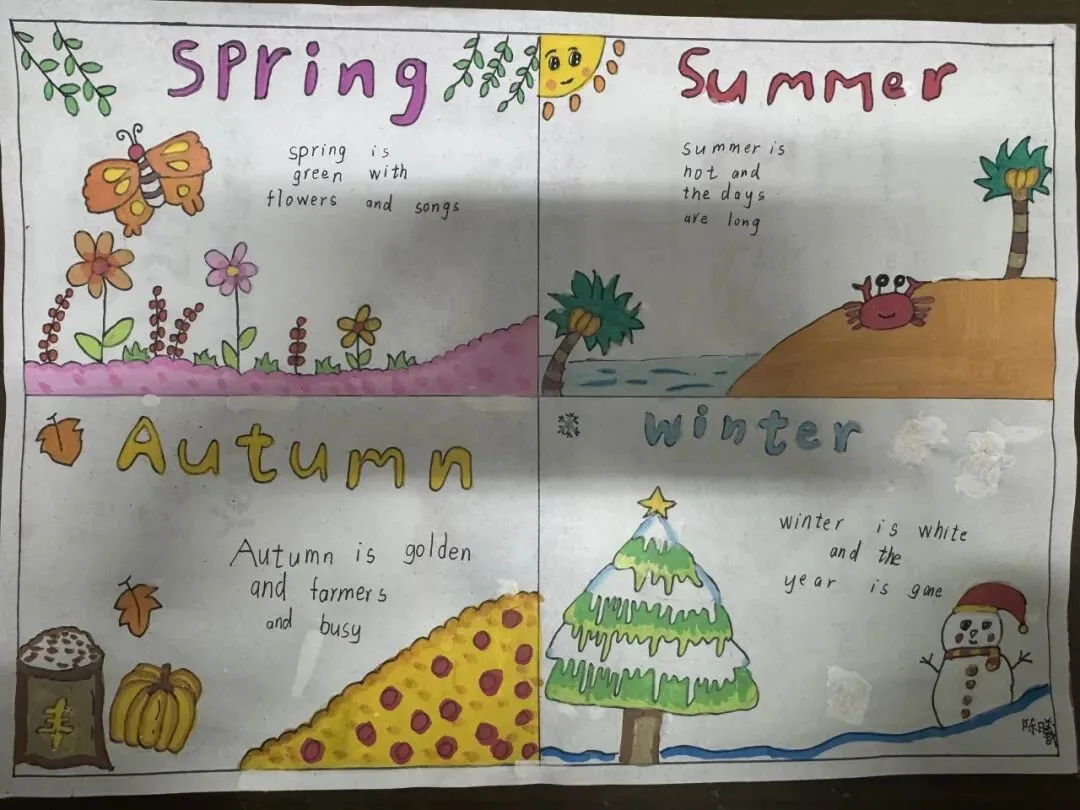 Spring
spring is
green with
flowers and songs
Summer
summer is
hot and
the days
are long
Autumn
Autumn is golden
and farmers
and busy
winter
winter is white
and the
year is gone
陈曦